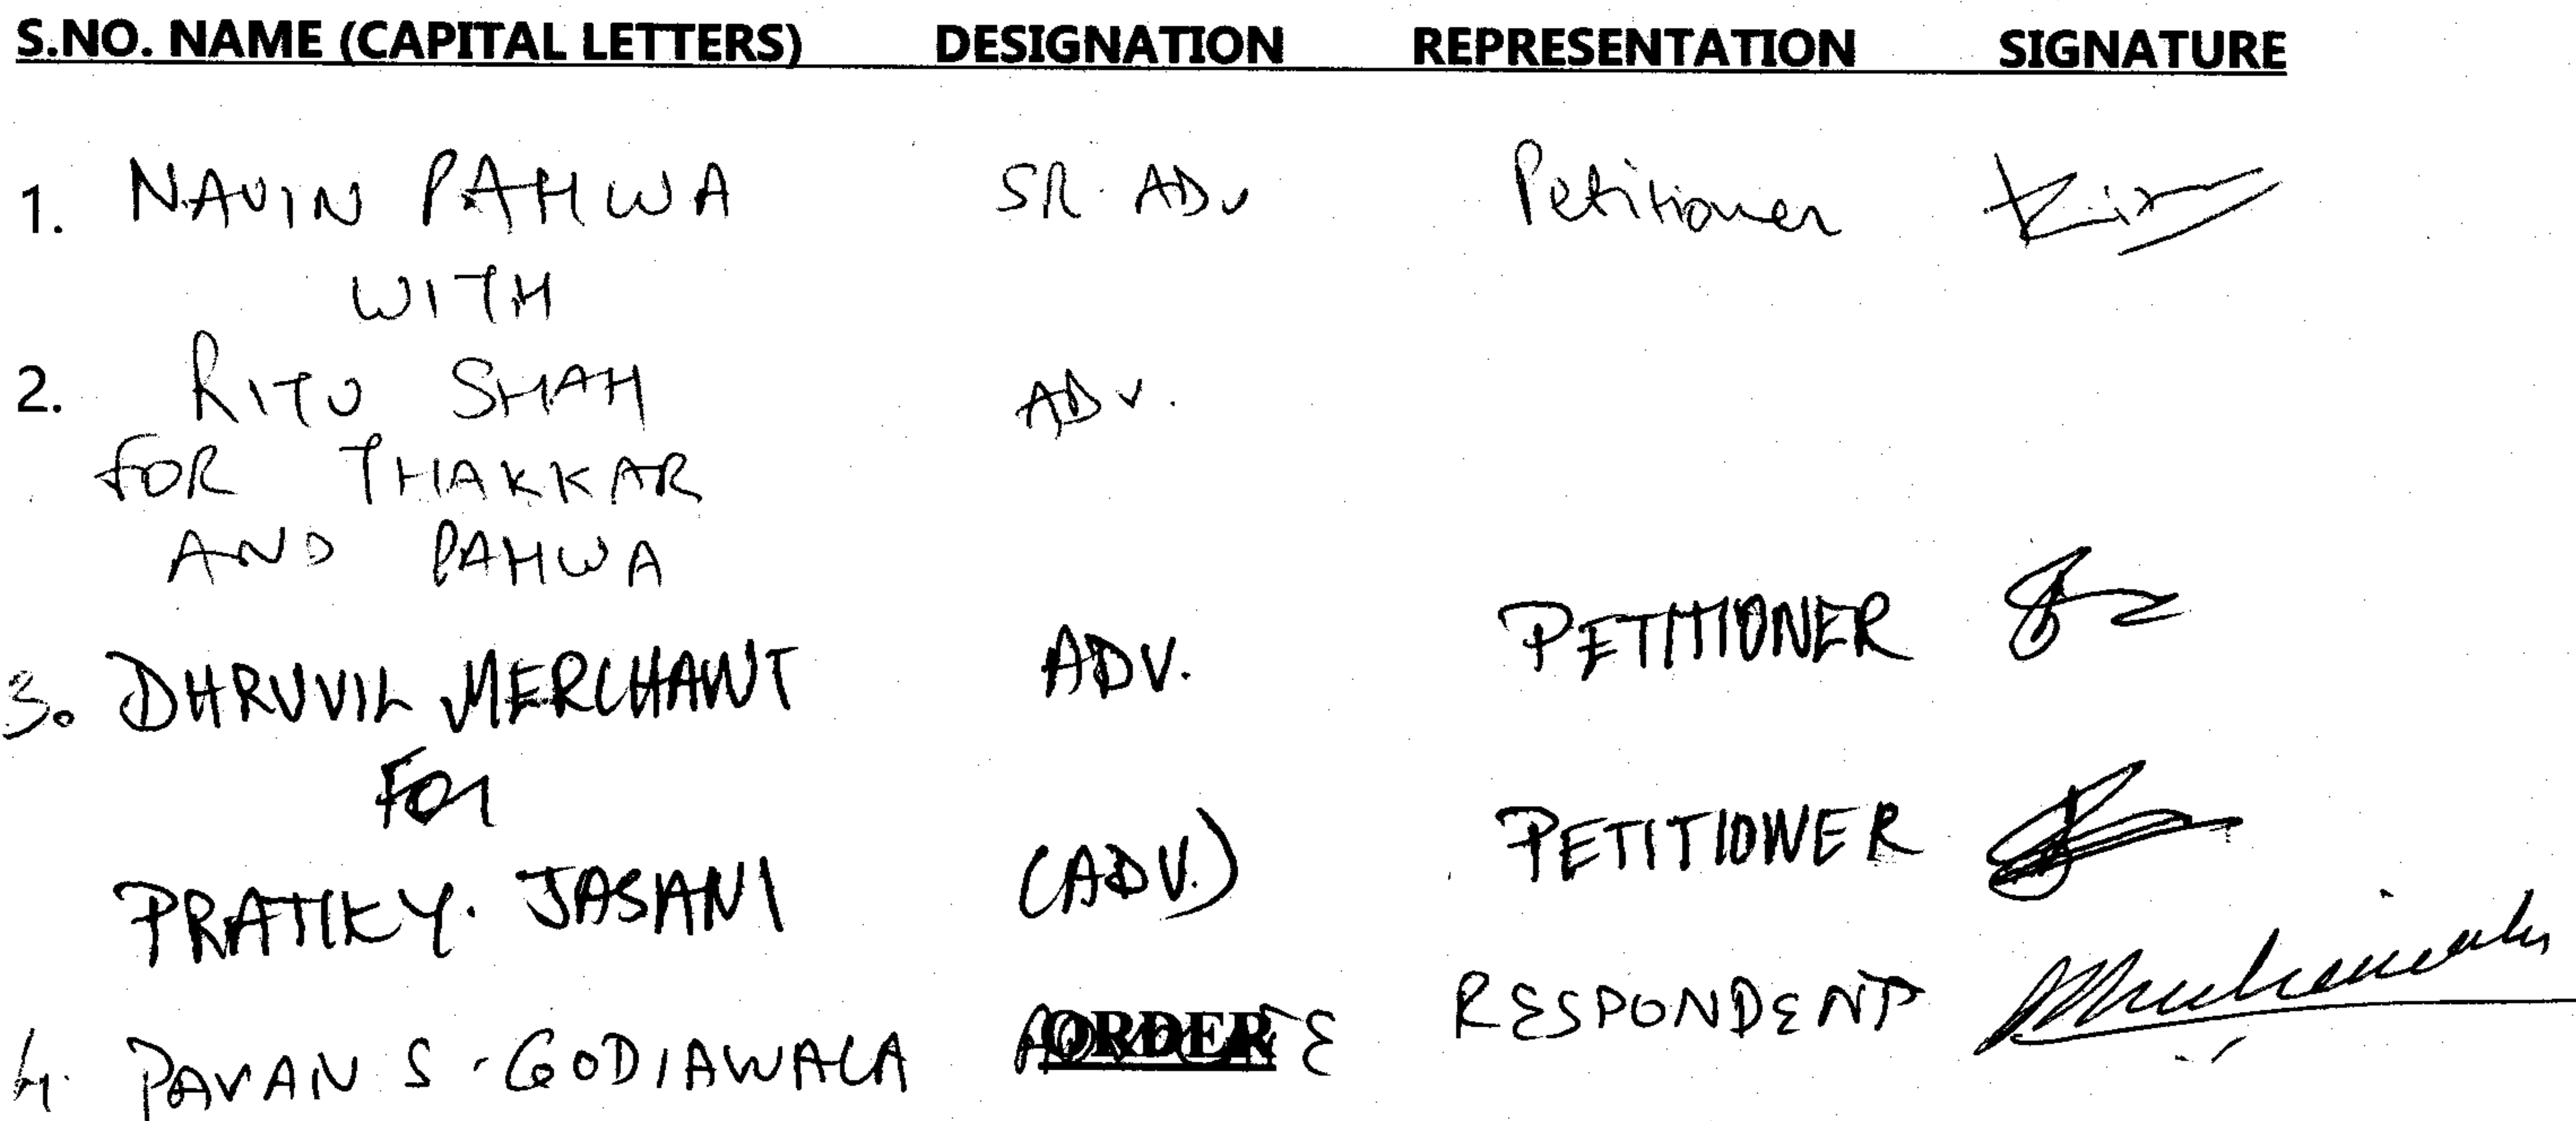 S.NO. NAME (CAPITAL LETTERS) DESIGNATION REPRESENTATION SIGNATURE
1. NAVIN PAHWA SR. ADV Petitioner
WITH
2. RITU SHAH ADV.
FOR THAKKAR
AND PAHWA
3. DHRUVIL MERCHANT ADV. PETITIONER
For
PRATIK Y. JASANI (ADV.) PETITIONER
4. PAVAN S. GODIAWALA ORDER RESPONDENT